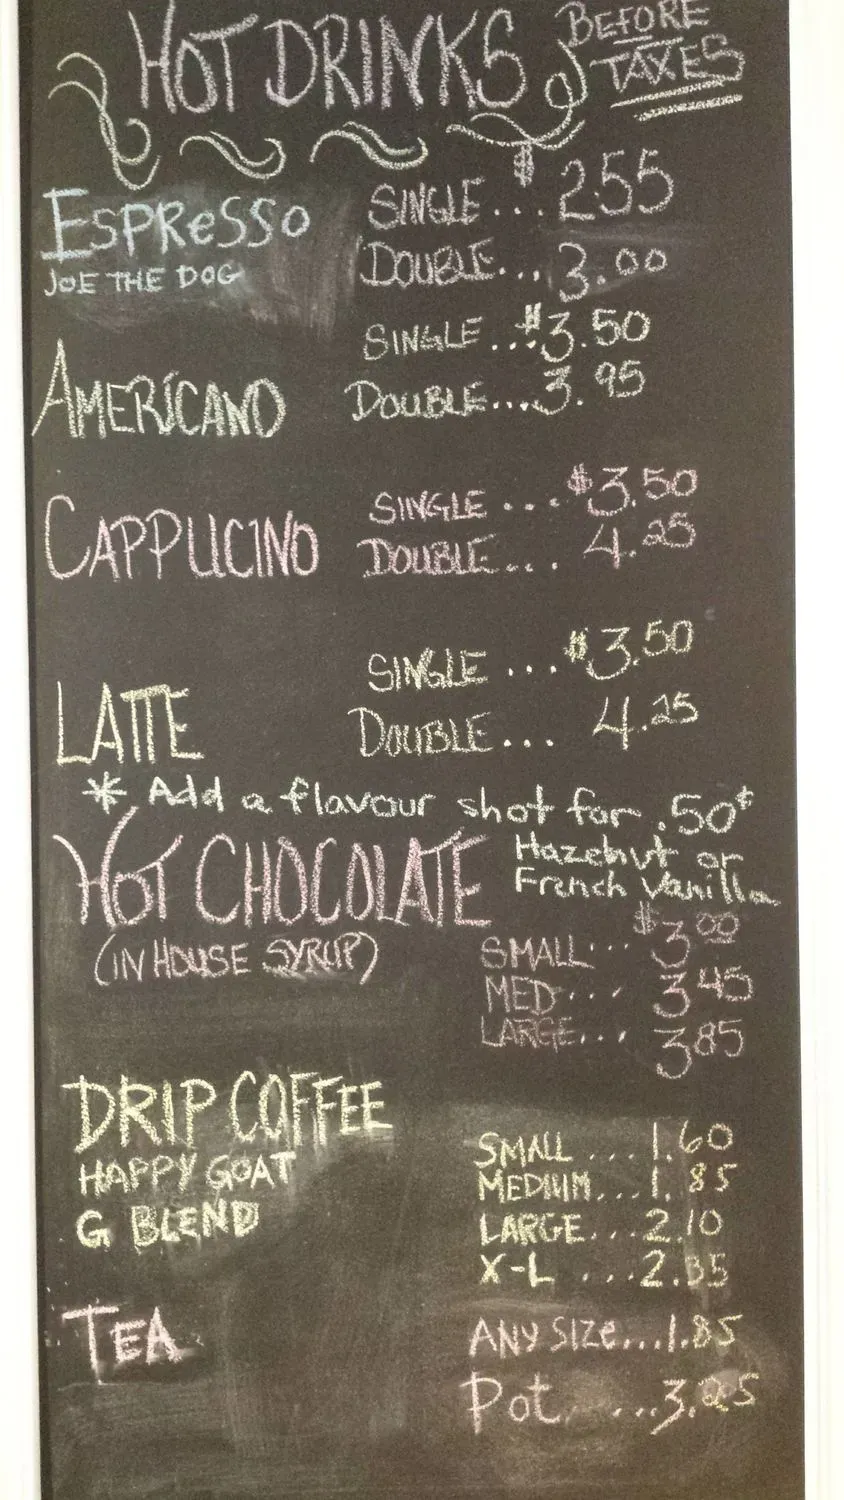 HOT DRINKS BEFORE TAXES
ESPResso SINGLE... $2.55
JOE THE DOG DOUBLE... 3.00
AMERICANO SINGLE...$3.50
DOUBLE...3.95
CAPPUCINO SINGLE ...$3.50
DOUBLE... 4.25
LATTE SINGLE ...$3.50
DOUBLE... 4.25
* Add a flavour shot for .50¢
Hazelnut or
French Vanilla
HOT CHOCOLATE
(IN HOUSE SYRUP) SMALL... $3.00
MED... 3.45
LARGE... 3.85
DRIP COFFEE
HAPPY GOAT
G BLEND
SMALL ... 1.60
MEDIUM...1.85
LARGE...2.10
X-L ...2.35
TEA ANY SIZe...1.85
Pot.....3.25